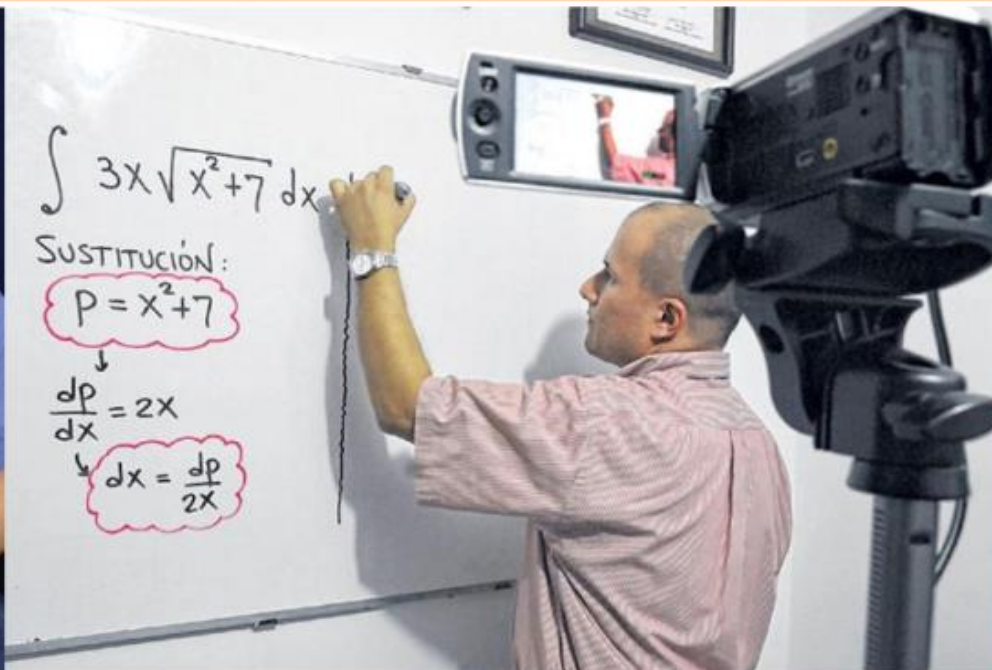 ∫ 3x√x²+7 dx
SUSTITUCIÓN:
P = x²+7
↓
dp/dx = 2x
↘ dx = dp/2x